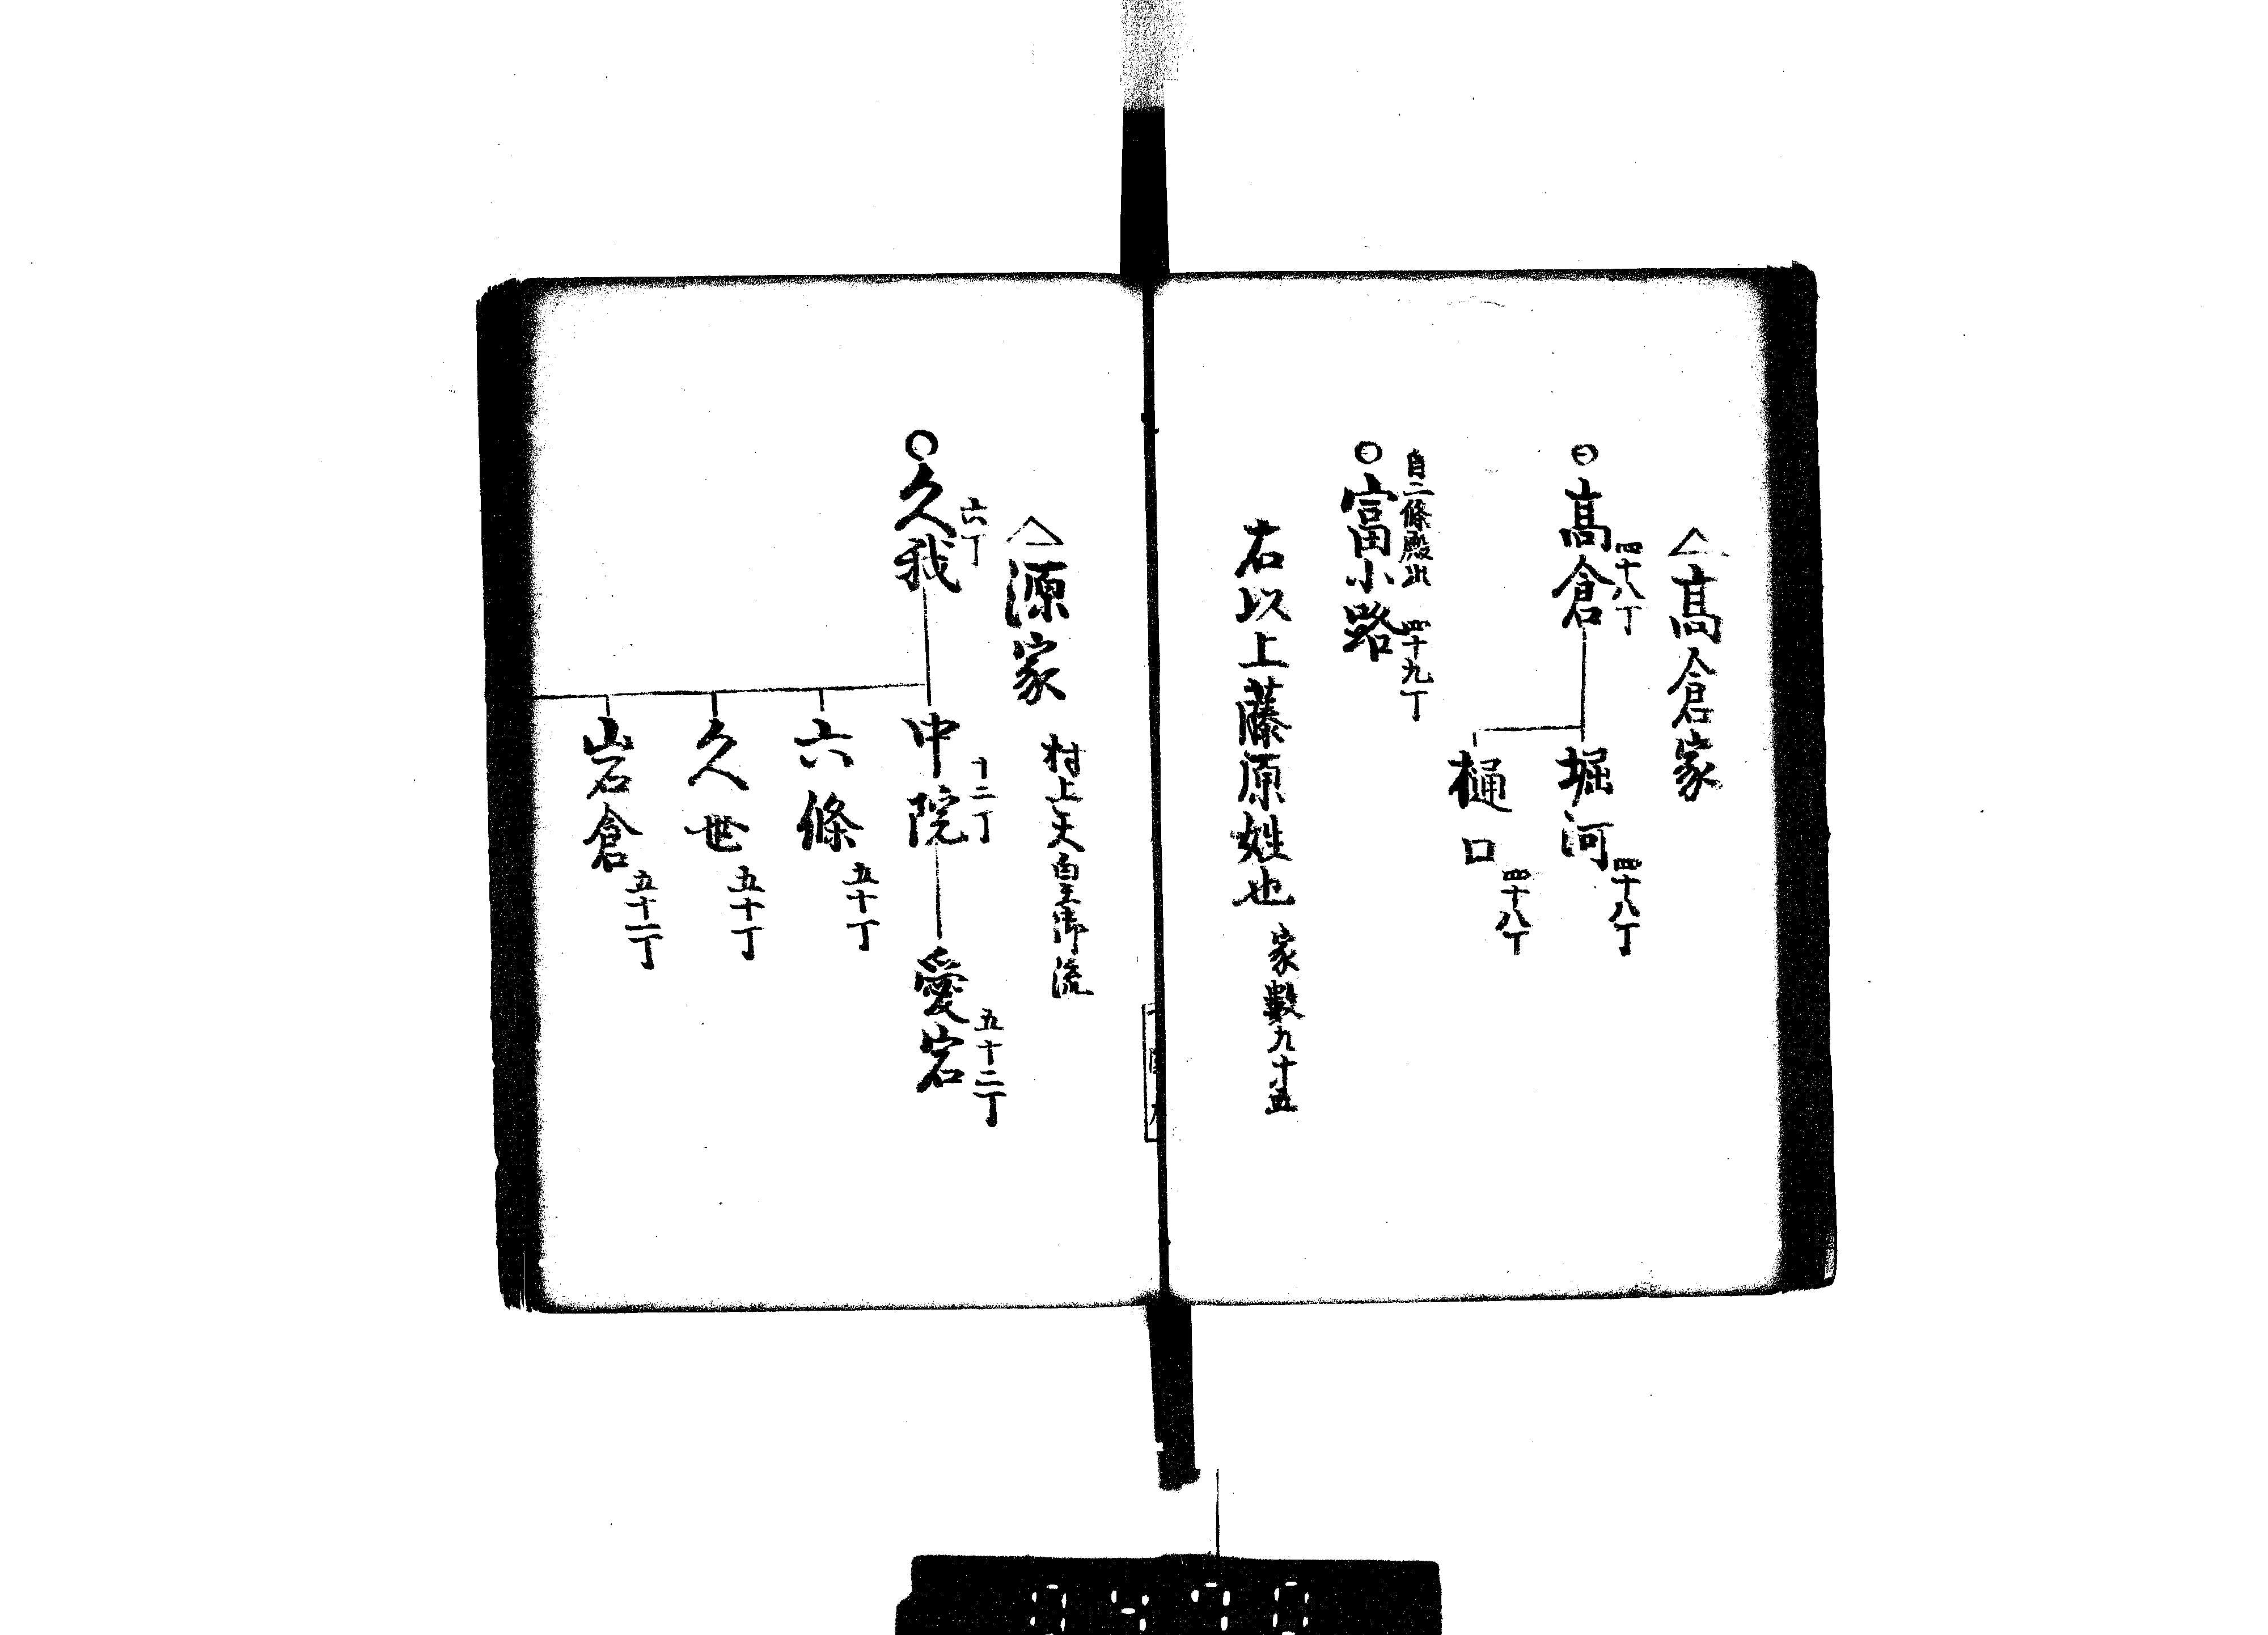 髙倉家
髙倉 四十八丁
堀河 四十八丁
樋口 四十八丁
自二條殿出 四十九丁
富小路
右以上藤原姓也 家數九十五
源家 村上天皇御流
久我 六丁
中院 十二丁
愛宕 五十二丁
六條 五十丁
久世 五十丁
岩倉 五十一丁